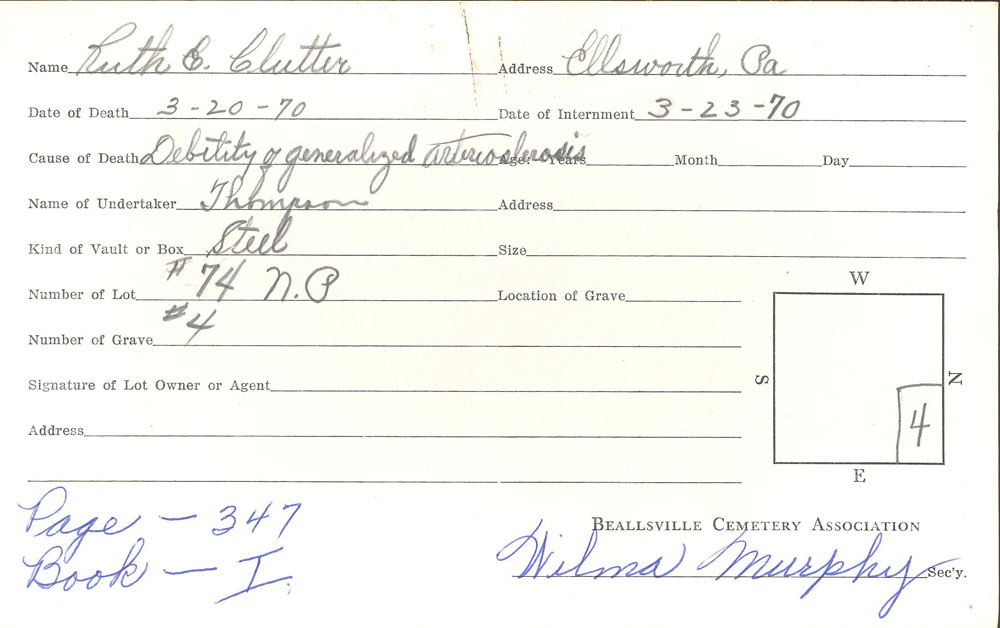 Name Ruth E. Clutter Address Ellsworth, Pa
Date of Death 3-20-70 Date of Internment 3-23-70
Cause of Death Debility & generalized arteriosclerosis Age: Years Month Day
Name of Undertaker Thompson Address
Kind of Vault or Box Steel Size
Number of Lot #74 N.P Location of Grave
Number of Grave #4
Signature of Lot Owner or Agent
Address
W
S
N
4
E
Page - 347
Book - I.
Beallsville Cemetery Association
Wilma Murphy Sec'y.